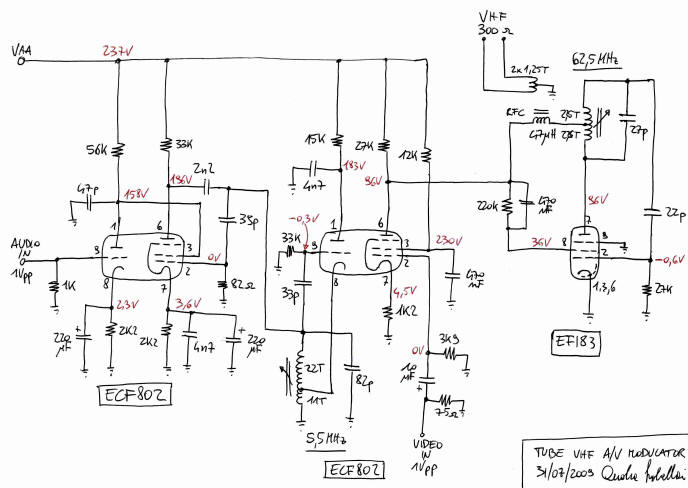 VHF
300Ω
VAA
237V
62,5MHz
2x1,25T
RFC
47μH
2,6T
2,6T
27p
56K
33K
15K
27K
12K
2n2
196V
183V
96V
47p
158V
4n7
220K
470
nF
96V
22p
35p
-0,3V
33K
1
6
3
2
9
8
7
0V
82Ω
AUDIO
IN
1Vpp
1K
1
6
3
2
9
8
7
230V
470
nF
36V
7
8
9
2
1,3,6
-0,6V
27K
33p
4,5V
1K2
2,3V
3,6V
220
μF
2K2
2K2
4n7
220
μF
22T
11T
82p
0V
3K9
10
μF
75Ω
EF183
ECF802
5,5MHz
ECF802
VIDEO
IN
1Vpp
TUBE VHF A/V MODULATOR
31/07/2009